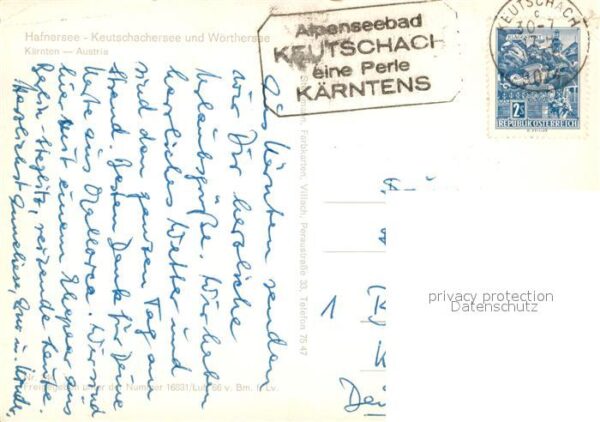 Hafnersee - Keutschachersee und Wörthersee
Kärnten — Austria
Alpenseebad
KEUTSCHACH
eine Perle
KÄRNTENS
KEUTSCHACH
2S
REPUBLIK ÖSTERREICH
Aus Kärnten senden
wir Dir herzliche
Urlaubsgrüße. Wir haben
herrliches Wetter und
sind den ganzen Tag am
Strand. Besten Dank für Deine
Karte aus Mallorca. Wir sind
hier mit einem Ehepaar aus
Berlin-Steglitz, reizende Leute.
Herzlichst Anneliese, u. Kinder
Farbkarten, Villach, Peraustraße 33, Telefon 75 47
Freigegeben unter der Nummer 16831/Luft 66 v. Bm. f. Lv.
1
privacy protection
Datenschutz